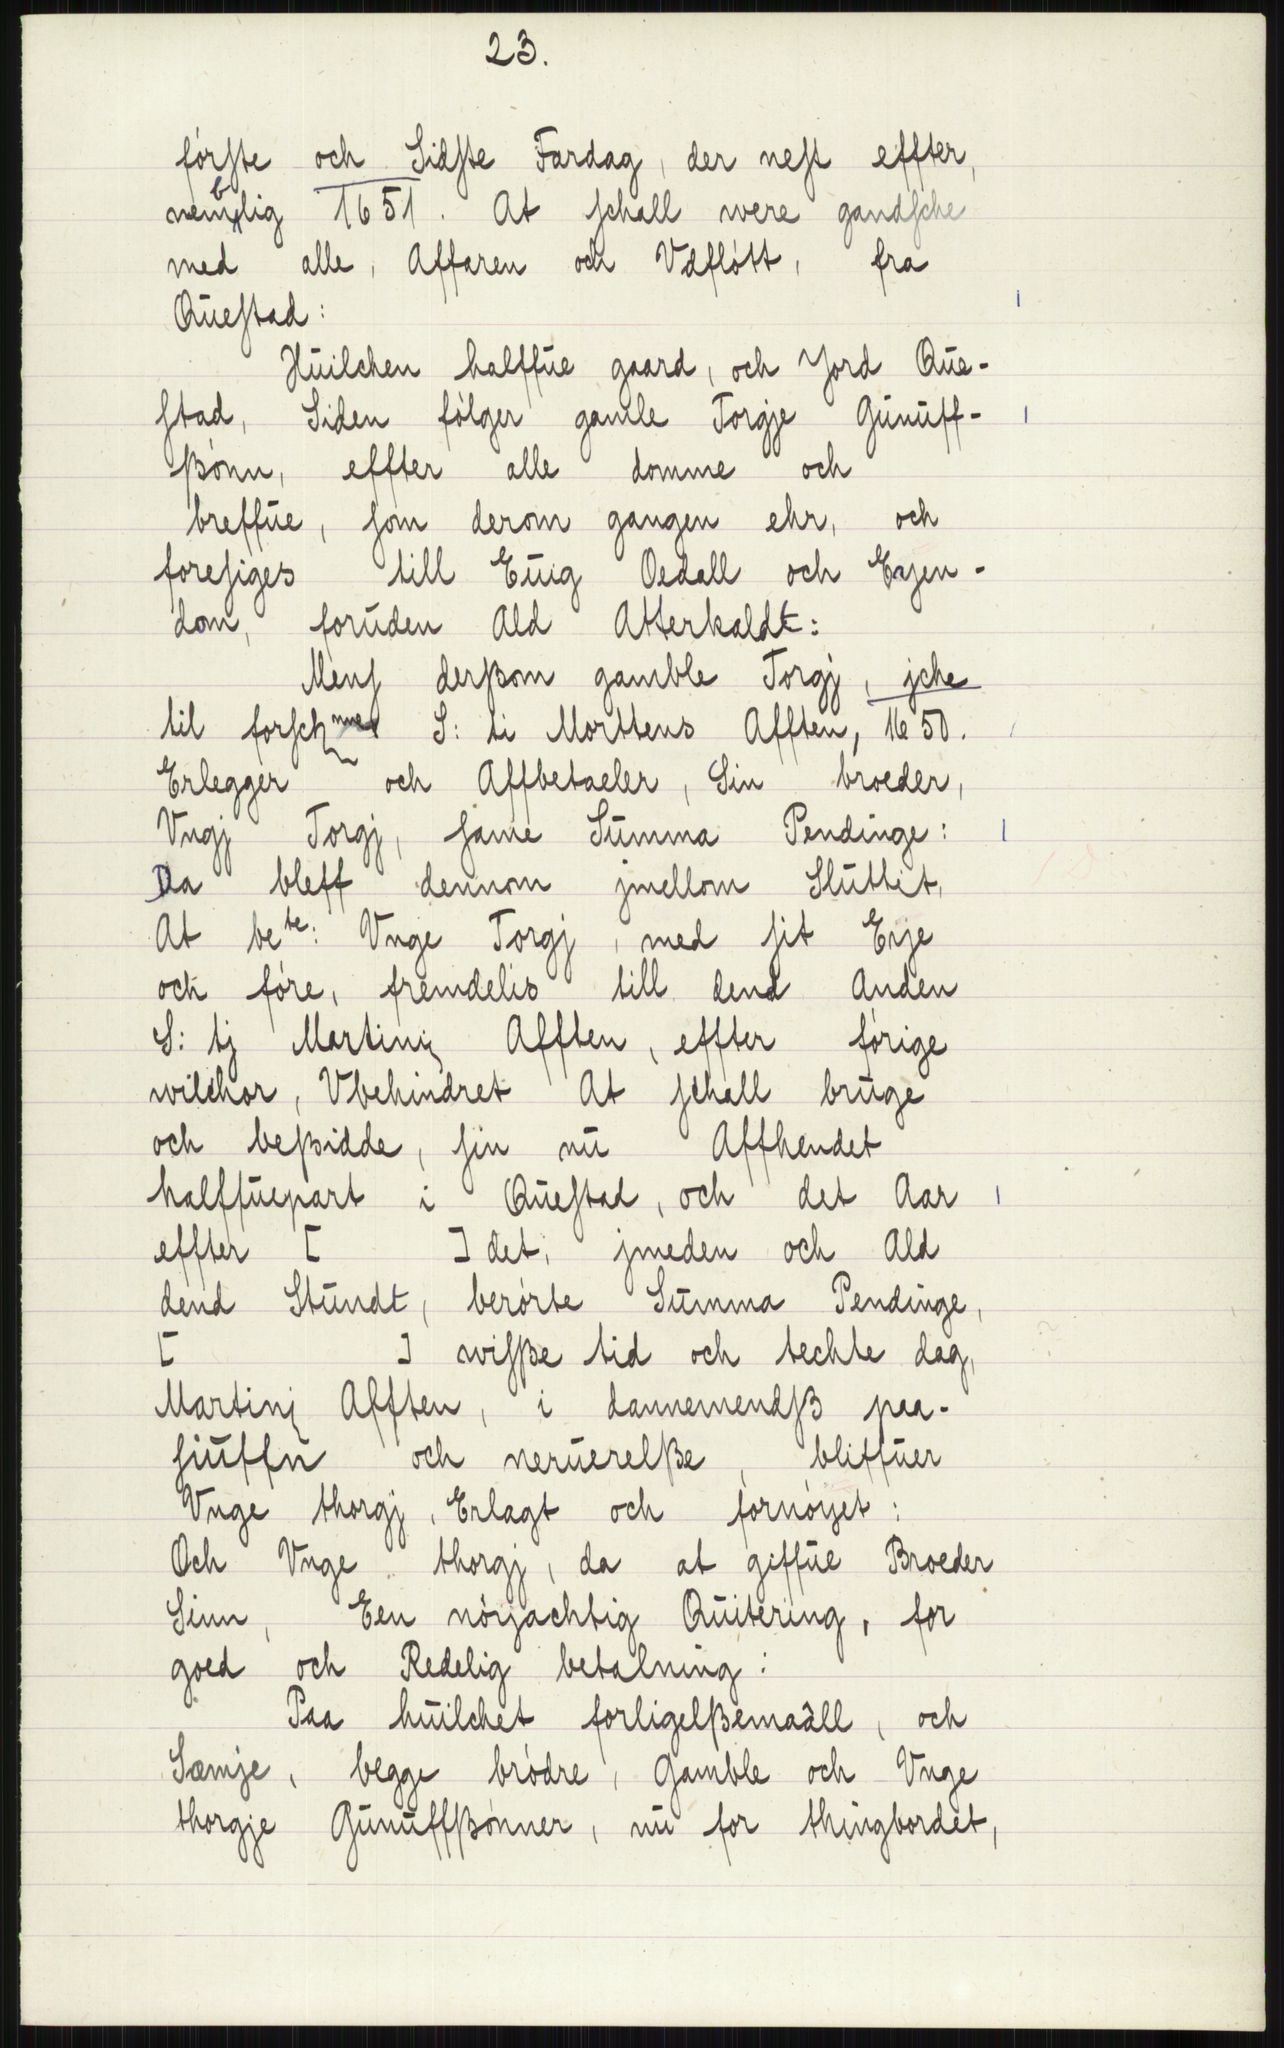 23.
fórste och Sidste Fardag, der nest effter,
nemblig 1651. At schall were gandsche
med alle, Affaren och Vdflótt, fra
Questad:
Huilchen halffue gaard, och Jord Que-
stad, Siden fólger gamle Torgje Gunuff-
ßónn, effter alle domme och
breffue, som derom gangen ehr, och
foresiges till Euig Oedall och Eyen-
dom, foruden Ald Atterkaldt:
Mens derßom gamble Torgj, jche
til forsch S: ti Morttens Afften, 1650.
Erlegger och Affbetaeler, Sin broeder,
Vngj Torgj, same Summa Pendinge:
Da bleff dennom jmellom Sluttet,
At bete: Vnge Torgj, med sit Eije
och fóre, fremdelis till dend Anden
S: tj Martinj Afften, effter fórige
wilchor, Vbehindret At schall bruge
och beßidde, sin nu Affhendet
halffuepart i Questad, och det Aar
effter [ ] det, jmeden och Ald
dend Stundt, berórte Summa Pendinge,
[ ] wisße tid och techte dag,
Martinj Afften, i dannemendsß paa-
siuffn och neruerelße, bliffuer
Vnge thorgj, Erlagt och fornóyet:
Och Vnge thorgj, da at giffue Broeder
Sinn, Een nórjachtig Quitering, for
goed och Redelig betalning:
Paa huilchet forligelßemaäll, och
Sæmje, begge bródre, Gamble och Vnge
thorgje Gunuffßónner, nu for thingbordet,